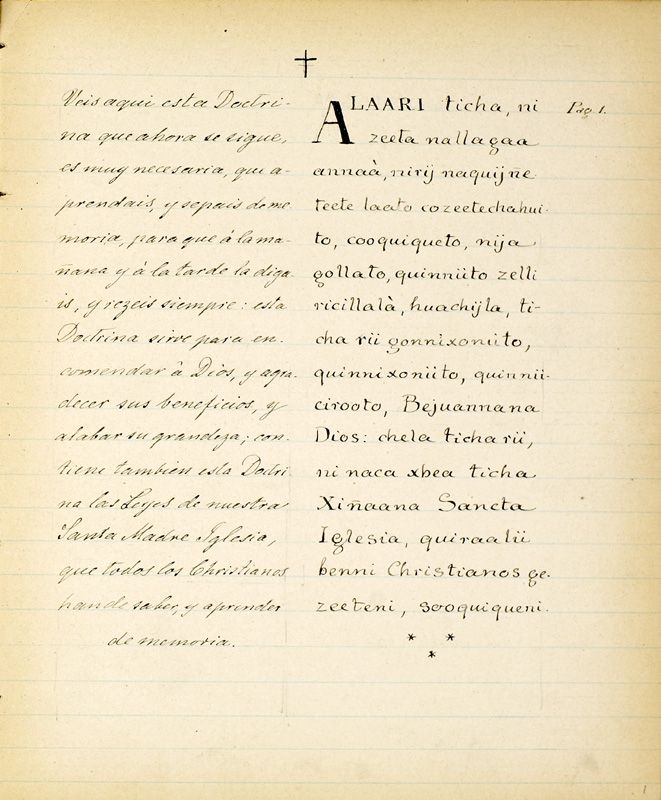 ✝
Veis aqui esta Doctri-
na que ahora se sigue,
es muy necesaria, que a-
prendais, y sepais de me
moria, para que à la ma-
ñana y à la tarde la diga
is, y rezeis siempre: esta
Doctrina sirve para en-
comendar à Dios, y agra-
decer sus beneficios, y
alabar su grandeza; con-
tiene tambien esta Doctri-
na las Leyes de nuestra
Santa Madre Iglesia,
que todos los Christianos
han de saber, y aprender
de memoria.
ALAARI ticha, ni
zeeta nallagaa
annaà, nirij naquijñe
teete laato cozeetechahui-
to, cooquiqueto, nija
gollato, quinniito zelli
ricillalà, huachijla, ti-
cha rii gonnixoniito,
quinnixoniito, quinnii-
cirooto, Bejuannana
Dios: chela ticha rii,
ni naca xbea ticha
Xiñaana Sancta
Iglesia, quiraalii
benni Christianos ge-
zeeteni, sooquiqueni.
* * *
Pag. 1.
1